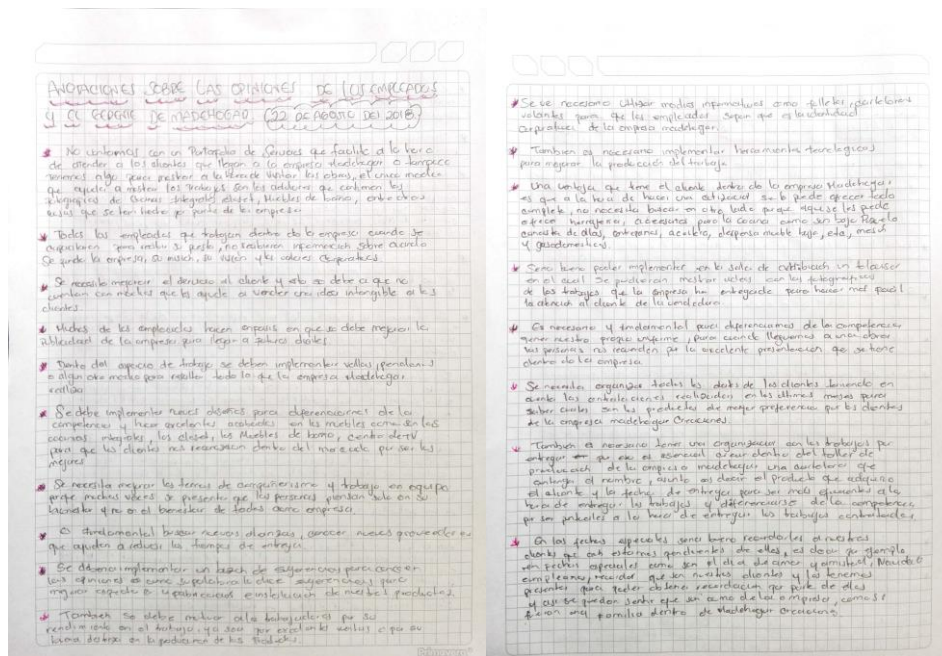 ANOTACIONES SOBRE LAS OPINIONES DE LOS EMPLEADOS
Y EL GERENTE DE MADEHOGAR (22 DE AGOSTO DEL 2018)
No contamos con un Portafolio de Servicios que facilite a la hora
de atender a los clientes que llegan a la empresa Madehogar o tampoco
tenemos algo para mostrar a la hora de visitar las obras, el único medio
que ayuda a mostrar los trabajos son los celulares que contienen las
fotografías de Cocinas integrales, closet, Muebles de baño, entre otras
cosas que se han hecho por parte de la empresa
Todos los empleados que trabajan dentro de la empresa cuando se
para su puesto, no recibieron información sobre cuando
se fundo la empresa, su misión, su visión y los valores Corporativos
Se necesita mejorar el servicio al cliente y esto se debe a que no
cuentan con medios que les ayude a vender una idea intangible a los
clientes.
Muchos de los empleados hacen enfasis en que se debe mejorar la
Publicidad de la empresa para llegar a futuros clientes
Dentro del espacio de trabajo se deben implementar vallas,
o algun otro medio para resaltar todo lo que la empresa Madehogar
realiza
Se debe implementar nuevos diseños para diferenciarnos de la
competencia y hacer excelentes acabados en los muebles como son las
cocinas integrales, los closet, los Muebles de baño, centro de TV
para que los clientes nos reconozcan dentro del mercado por ser los
mejores
Se necesita mejorar los temas de compañerismo y trabajo en equipo
porque muchas veces se presenta que las personas piensan solo en su
y no en el bienestar de todos como empresa.
Es fundamental buscar nuevas alianzas, conocer nuevos proveedores
que ayuden a reducir los tiempos de entrega
Se debería implementar un buzón de sugerencias para conocer
las opiniones o como su palabra lo dice sugerencias para
mejorar aspectos y e instalación de nuestros productos.
Tambien se debe motivar a los trabajadores por su
rendimiento en el trabajo, ya sea por excelentes ventas o por su
buena labor en la produccion de los Productos.
Se ve necesario utilizar medios informativos como folletos,
volantes para que los empleados sepan que es la identidad
corporativa de la empresa madehogar.
Tambien es necesario implementar herramientas tecnologicas
para mejorar la producción del trabajo
Una ventaja que tiene el cliente dentro de la empresa Madehogar
es que a la hora de hacer una cotización se le puede ofrecer todo
completo, no necesita buscar en otro lado porque aqui se les puede
ofrecer herrajes, accesorios para la cocina como son
canasta de ollas, entrepaños, aceitera, despensa mueble bajo, etc, meson
y gasodomesticos.
Seria bueno poder implementar en la sala de exhibicion un televisor
en el cual se pudieran mostrar videos con las fotografias
de los trabajos que la empresa ha entregado para hacer mas facil
la atencion al cliente de la vendedora
Es necesario y fundamental para diferenciarnos de la competencia
tener nuestro propio uniforme, para cuando lleguemos a una obra
las personas nos recuerden por la excelente presentacion que se tiene
dentro de la empresa.
Se necesita organizar todos los datos de los clientes teniendo en
cuenta las realizadas en los últimos meses para
saber cuales son los productos de mayor preferencia por los clientes
de la empresa madehogar Creaciones.
Tambien es necesario tener una organización con los trabajos por
entregar por eso es esencial crear dentro del taller de
producción de la empresa madehogar una cartelera que
contenga el nombre, asunto es decir el producto que adquirio
el cliente y la fecha de entrega para ser más eficientes a la
hora de entregar los trabajos y diferenciarse de la competencia
por ser puntuales a la hora de entregar los trabajos contratados.
En las fechas especiales seria bueno recordarles a nuestros
clientes que aun estamos pendientes de ellos, es decir por ejemplo
en fechas especiales como son el dia de amor y amistad, Navidad
cumpleaños, recordar que son nuestros clientes y los tenemos
presentes para poder obtener recordacion por parte de ellos
y asi se puedan sentir que son como de la empresa, como si
fueran una familia dentro de Madehogar Creaciones.